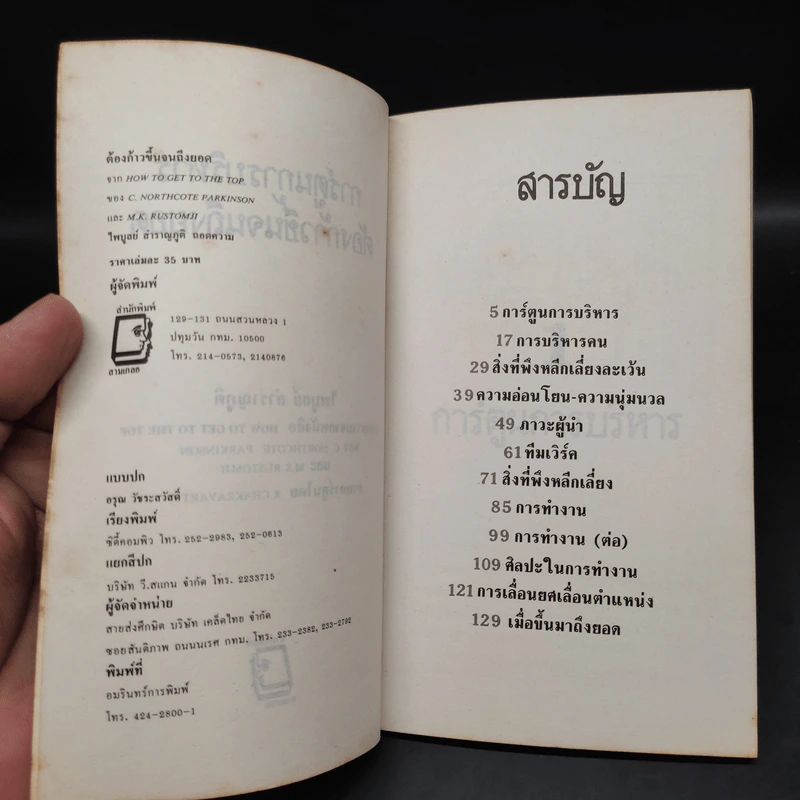 ต้องก้าวขึ้นจนถึงยอด
จาก HOW TO GET TO THE TOP
ของ C. NORTHCOTE PARKINSON
และ M.K. RUSTOMJI
ไพบูลย์ สำราญภูติ ถอดความ
ราคาเล่มละ 35 บาท
ผู้จัดพิมพ์
สำนักพิมพ์
สามเกลอ
129-131 ถนนสวนหลวง 1
ปทุมวัน กทม. 10500
โทร. 214-0573, 2140876
แบบปก
อรุณ วัชระสวัสดิ์
เรียงพิมพ์
ซิตี้คอมพิว โทร. 252-2983, 252-0613
แยกสีปก
บริษัท วี.สแกน จำกัด โทร. 2233715
ผู้จัดจำหน่าย
สายส่งศึกษิต บริษัท เคล็ดไทย จำกัด
ซอยสันติภาพ ถนนนเรศ กทม. โทร. 233-2382, 233-2792
พิมพ์ที่
อมรินทร์การพิมพ์
โทร. 424-2800-1
สารบัญ
5 การ์ตูนการบริหาร
17 การบริหารคน
29 สิ่งที่พึงหลีกเลี่ยงละเว้น
39 ความอ่อนโยน-ความนุ่มนวล
49 ภาวะผู้นำ
61 ทีมเวิร์ค
71 สิ่งที่พึงหลีกเลี่ยง
85 การทำงาน
99 การทำงาน (ต่อ)
109 ศิลปะในการทำงาน
121 การเลื่อนยศเลื่อนตำแหน่ง
129 เมื่อขึ้นมาถึงยอด